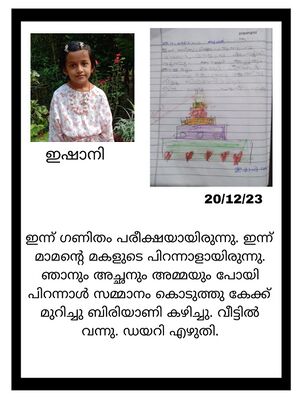 ഇഷാനി
20/12/23
ഇന്ന് ഗണിതം പരീക്ഷയായിരുന്നു. ഇന്ന്
മാമന്റെ മകളുടെ പിറന്നാളായിരുന്നു.
ഞാനും അച്ഛനും അമ്മയും പോയി
പിറന്നാൾ സമ്മാനം കൊടുത്തു കേക്ക്
മുറിച്ചു ബിരിയാണി കഴിച്ചു. വീട്ടിൽ
വന്നു. ഡയറി എഴുതി.